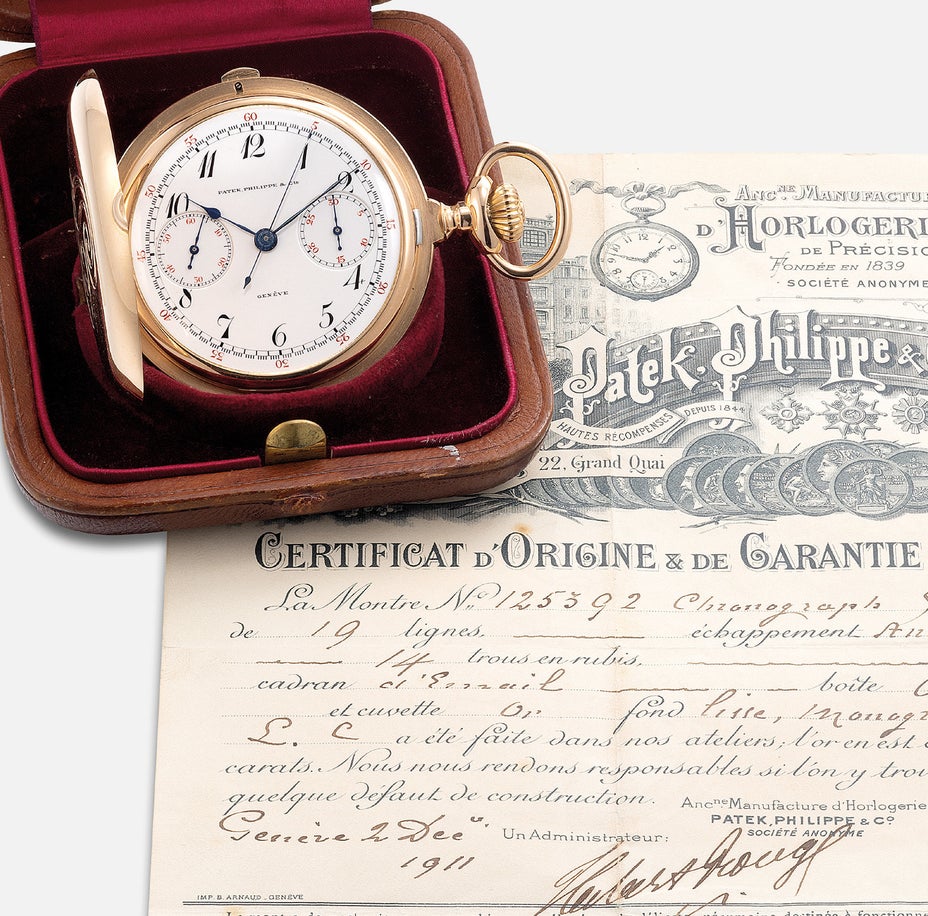 60
55
5
11
12
1
50
10
PATEK, PHILIPPE & Cie
10
9
15
8
GENÈVE
4
20
40
7
6
5
25
35
30
ANC.NE MANUFACTU
D'HORLOGERI
DE PRÉCISIO
FONDÉE EN 1839
SOCIÉTÉ ANONYME
Patek, Philippe &
HAUTES RÉCOMPENSES DEPUIS 1844
22, Grand Quai
CERTIFICAT D'ORIGINE & DE GARANTIE
La Montre No. 125392 Chronograph
de 19 lignes. échappement An
14 trous en rubis.
cadran d'Email boîte O
et cuvette Or fond lisse, Monogr
L. C a été faite dans nos ateliers; l'or en est
carats. Nous nous rendons responsables si l'on y trou
quelque défaut de construction.
Ancne Manufacture d'Horlogerie
PATEK, PHILIPPE & Co
SOCIÉTÉ ANONYME
Genève 2 Dec Un Administrateur:
1911
IMP. B. ARNAUD. GENÈVE